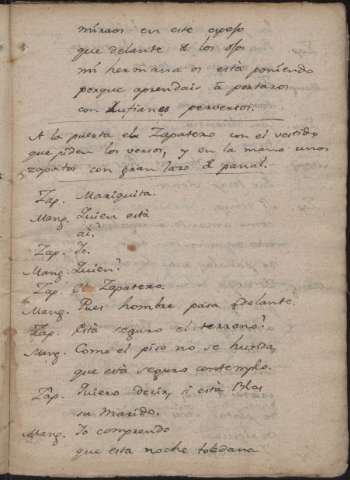 miraos en este espejo
que delante de los ojos
mi hermana os está poniendo
porque aprendais à portaros
con Rufianes perversos.
A la puerta el Zapatero con el vestido
que piden los versos, y en la mano unos
zapatos con gran lazo de panal.
Zap. Mariquita.
Mang. Quien está
ai?
Zap. Yo.
Mang. Quien?
Zap. El Zapatero.
Mang. Pues hombre pasa adelante.
Zap. Está seguro el terreno?
Mang. Como el piso no se hunda,
que está seguro contemplo.
Zap. Quiero decir, si está Blas
su Marido.
Mang. Ya comprendo
que esta noche toledana